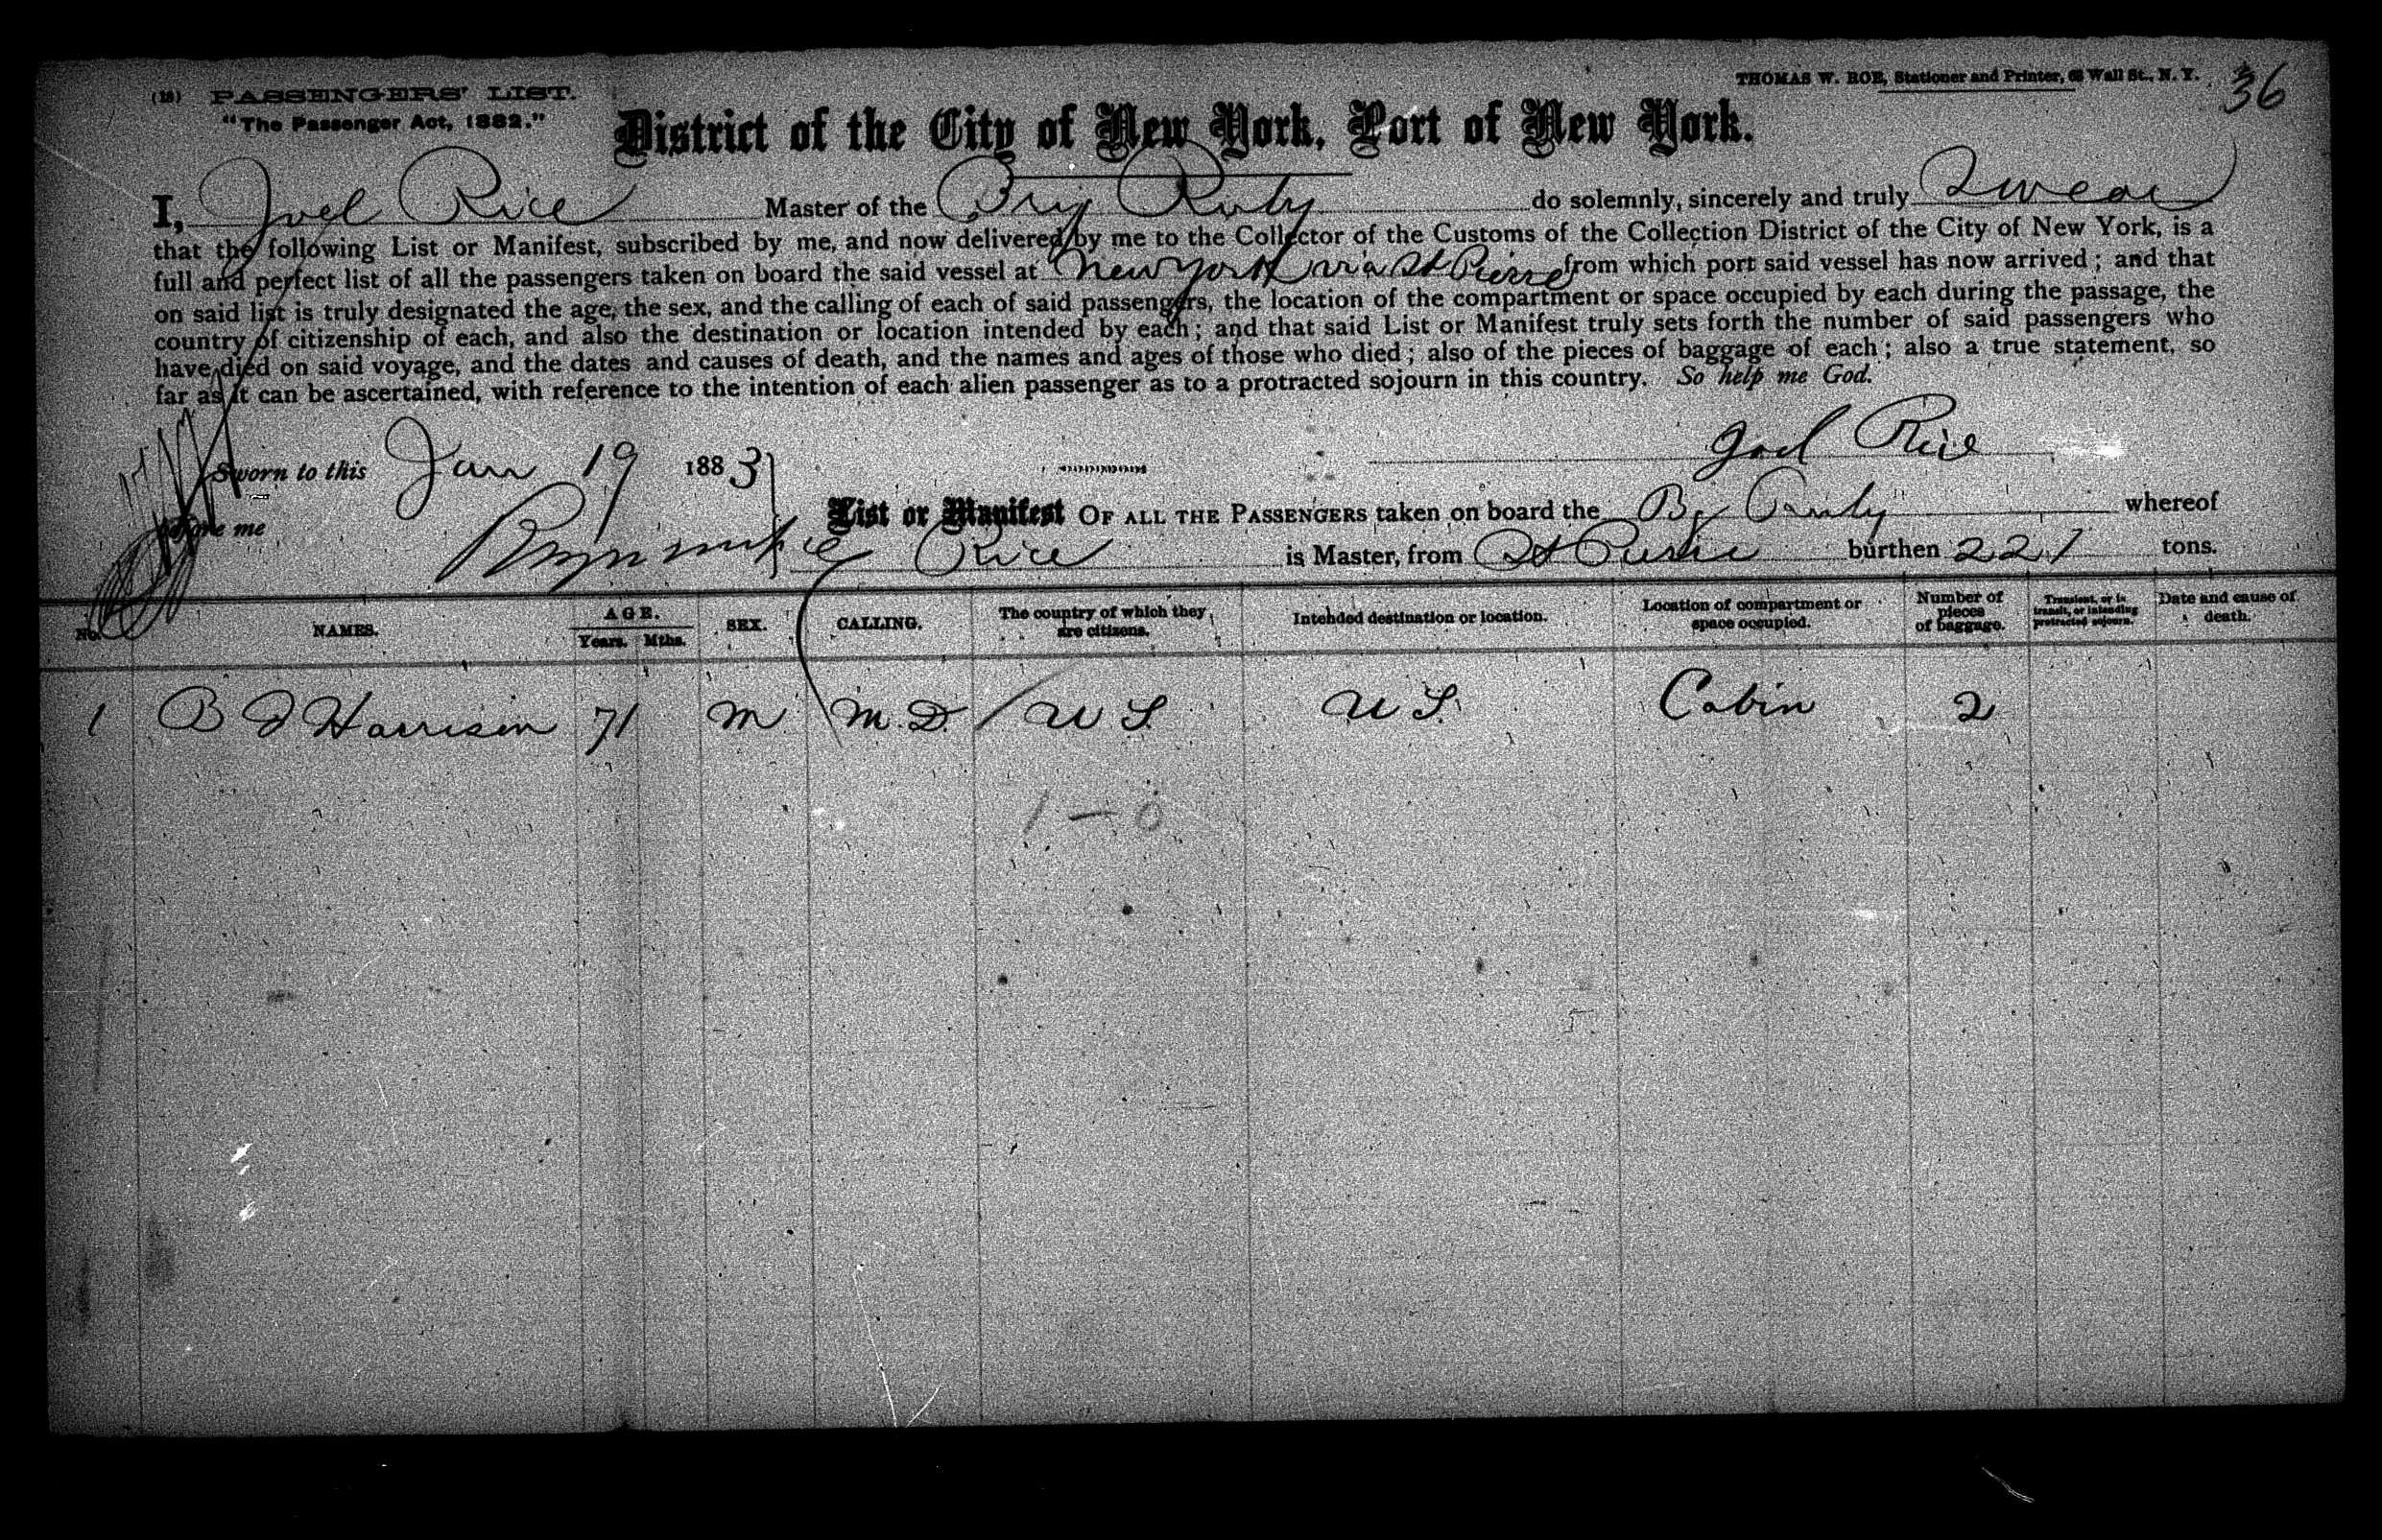 (18) PASSENGERS' LIST.
"The Passenger Act, 1882."
THOMAS W. ROE, Stationer and Printer, 63 Wall St., N. Y.
36
District of the City of New York, Port of New York.
I, Joel Rice Master of the Brig Ruby do solemnly, sincerely and truly Swear
that the following List or Manifest, subscribed by me, and now delivered by me to the Collector of the Customs of the Collection District of the City of New York, is a
full and perfect list of all the passengers taken on board the said vessel at New York via St Pierre from which port said vessel has now arrived; and that
on said list is truly designated the age, the sex, and the calling of each of said passengers, the location of the compartment or space occupied by each during the passage, the
country of citizenship of each, and also the destination or location intended by each; and that said List or Manifest truly sets forth the number of said passengers who
have died on said voyage, and the dates and causes of death, and the names and ages of those who died; also of the pieces of baggage of each; also a true statement, so
far as it can be ascertained, with reference to the intention of each alien passenger as to a protracted sojourn in this country. So help me God.
Sworn to this Jan 19 1883
Joel Rice
before me
List or Manifest OF ALL THE PASSENGERS taken on board the Bg Ruby whereof
Rice is Master, from St Pierre burthen 221 tons.
No. NAMES. AGE. Years. Mths. SEX. CALLING. The country of which they are citizens. Intended destination or location. Location of compartment or space occupied. Number of pieces of baggage. Transient, or in transit, or intending protracted sojourn. Date and cause of death.
1 B J Harrison 71 M M.D. U S. U S. Cabin 2
1 — 0